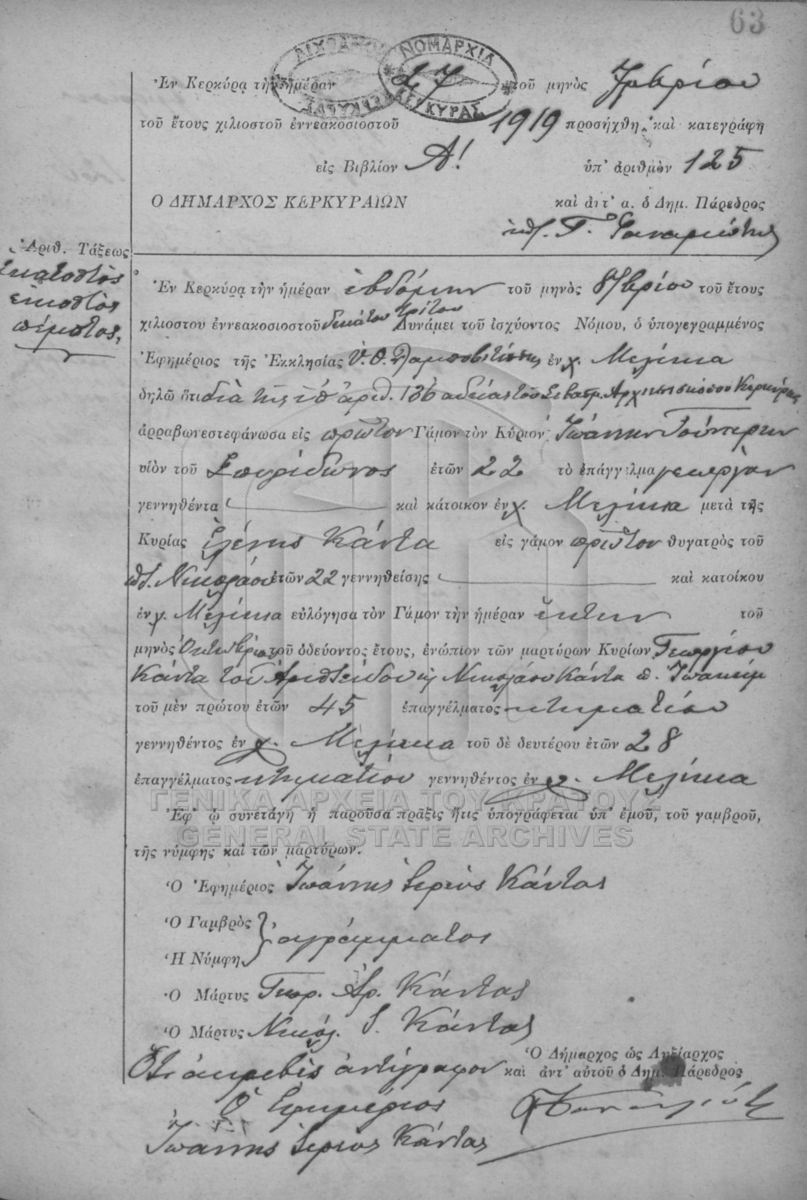 63
ΝΟΜΑΡΧΙΑ ΚΕΡΚΥΡΑΣ
Ἐν Κερκύρᾳ τὴν ἡμέραν 27 τοῦ μηνὸς
τοῦ ἔτους χιλιοστοῦ ἐννεακοσιοστοῦ 1919 προσήχθη καὶ κατεγράφη
εἰς Βιβλίον Α! ὑπ' ἀριθμὸν 125
Ο ΔΗΜΑΡΧΟΣ ΚΕΡΚΥΡΑΙΩΝ καὶ ἀντ' α. ὁ Δημ. Πάρεδρος
Ἀριθ. Τάξεως
ἑκατοστὸς
εἰκοστὸς
πέμπτος,
Ἐν Κερκύρᾳ τὴν ἡμέραν ἑβδόμην τοῦ μηνὸς 8/βρίου τοῦ ἔτους
χιλιοστου ἐννεακοσιοστοῦ δεκάτου τρίτου Δυνάμει τοῦ ἰσχύοντος Νόμου, ὁ ὑπογεγραμμένος
Ἐφημέριος τῆς Ἐκκλησίας ἐν χ. Μελίκια
δηλῶ ὅτι διὰ τῆς ὑπ' ἀριθ. 136 ἀδείας τοῦ Σεβασμ. Ἀρχιεπισκόπου Κερκύρας
ἀρραβωνεστεφάνωσα εἰς πρῶτον Γάμον τὸν Κύριον Ἰωάννην
υἱὸν τοῦ Σπυρίδωνος ἐτῶν 22 τὸ ἐπάγγελμα γεωργὸν
γεννηθέντα καὶ κάτοικον ἐν χ. Μελίκια μετὰ τῆς
Κυρίας Ἑλένης Κάντα εἰς γάμον πρῶτον θυγατρὸς τοῦ
π. Νικολάου ἐτῶν 22 γεννηθείσης καὶ κατοίκου
ἐν χ. Μελίκια εὐλόγησα τὸν Γάμον τὴν ἡμέραν ἕκτην τοῦ
μηνὸς Ὀκτωβρίου τοῦ ὁδεύοντος ἔτους, ἐνώπιον τῶν μαρτύρων Κυρίων Γεωργίου
Κάντα τοῦ Ἀριστείδου κ Νικολάου Κάντα π. Ἰωακεὶμ
τοῦ μὲν πρώτου ἐτῶν 45 ἐπαγγέλματος κτηματίου
γεννηθέντος ἐν χ. Μελίκια τοῦ δὲ δευτέρου ἐτῶν 28
ἐπαγγέλματος κτηματίου γεννηθέντος ἐν χ. Μελίκια
ΓΕΝΙΚΑ ΑΡΧΕΙΑ ΤΟΥ ΚΡΑΤΟΥΣ
Ἐφ' ᾧ συνετάγη ἡ παροῦσα πρᾶξις ἥτις ὑπογράφεται ὑπ' ἐμοῦ, τοῦ γαμβροῦ,
GENERAL STATE ARCHIVES
τῆς νύμφης καὶ τῶν μαρτύρων.
Ὁ Ἐφημέριος Ἰωάννης Ἱερεὺς Κάντας
Ὁ Γαμβρὸς
ἀγράμματοι
Ἡ Νύμφη
Ὁ Μάρτυς Γεωρ. Αρ. Κάντας
Ὁ Μάρτυς Νικόλ. Ι. Κάντας
Ὁ Δήμαρχος ὡς Ληξίαρχος
Ὅτι ἀκριβὲς ἀντίγραφον καὶ ἀντ' αὐτοῦ ὁ Δημ. Πάρεδρος
Ὁ Ἐφημέριος
Ἰωάννης Ἱερεὺς Κάντας